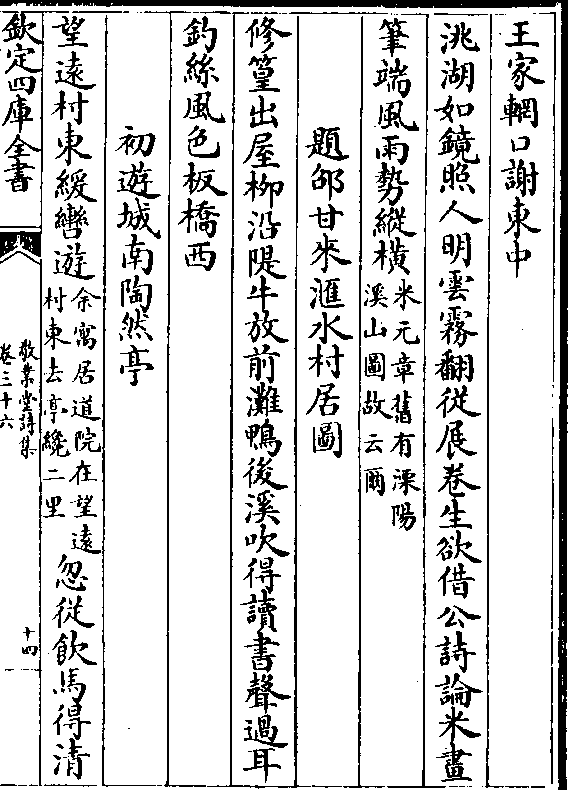 王家輞口謝東中
洮湖如鏡照人明雲霧翻從展卷生欲借公詩論米畫
筆端風雨勢縱横米元章舊有溧陽溪山圖故云爾
題邵甘來滙水村居圖
修篁出屋栁沿隄牛放前灘鴨後溪吹得讀書聲過耳
釣絲風色板橋西
初遊城南陶然亭
望逺村東緩轡遊余寓居道院在望逺村東去亭纔二里忽從飲馬得清
欽定四庫全書
敬業堂詩集
卷三十六
十四